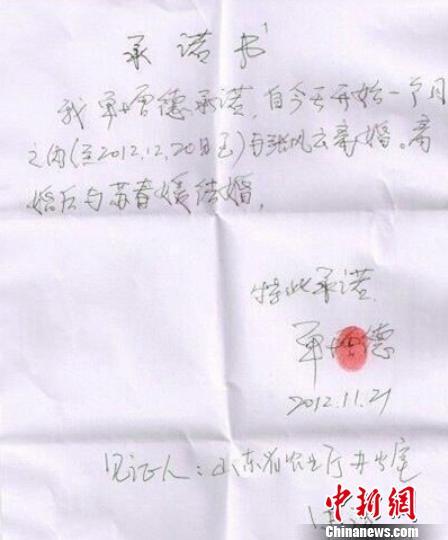 承诺书
我单增德承诺，自今天开始一个月
之内(至2012.12.20日止)与张风云离婚。离
婚后与苏春媛结婚，
特此承诺.
单增德
2012.11.21
见证人：山东省农业厅办公室
中新网
www.chinanews.com